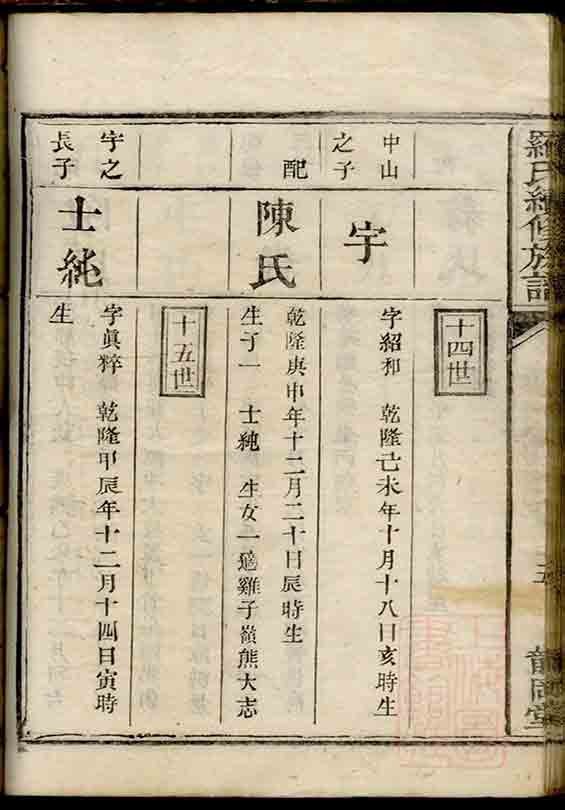 羅氏續修族譜
五
十四世
中山
之子
宇
字紹和 乾隆己未年十月十八日亥時生
配
陳氏
乾隆庚申年十二月二十日辰時生
生子一 士純 生女一適雞子嶺熊大志
十五世
宇之
長子
士純
字眞粹 乾隆甲辰年十二月十四日寅時
生